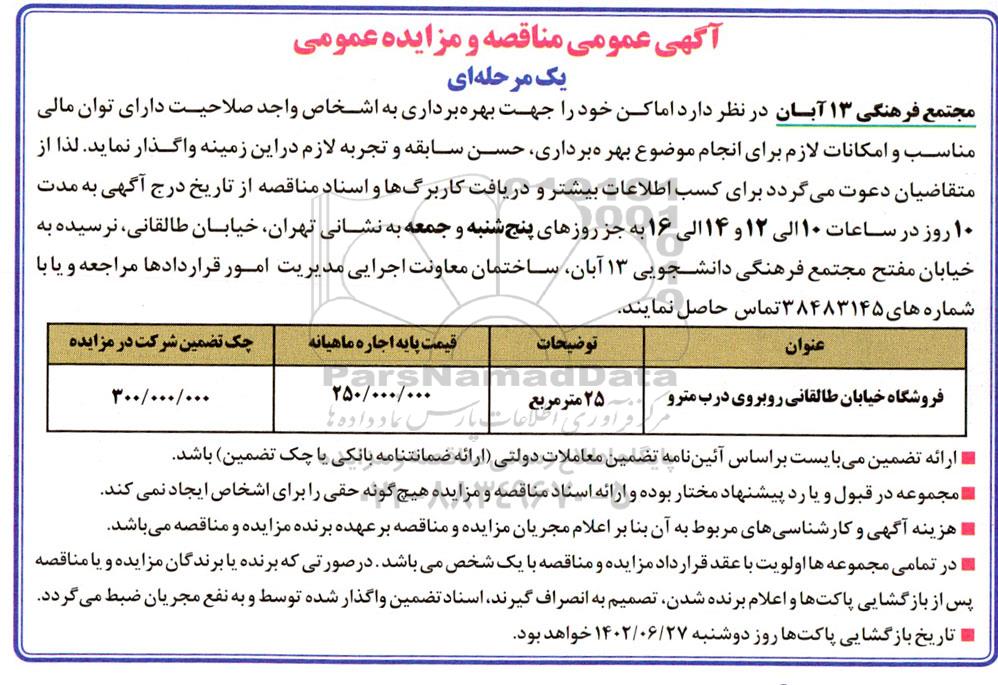 آگهی عمومی مناقصه و مزایده عمومی
یک مرحله‌ای
مجتمع فرهنگی ۱۳ آبــان در نظر دارد اماکن خود را جهت بهره‌برداری به اشخاص واجد صلاحیت دارای توان مالی
مناسب و امکانات لازم برای انجام موضوع بهر ه‌برداری، حسن سابقه و تجربه لازم دراین زمینه واگذار نماید. لذا از
متقاضیان دعوت می‌گردد برای کسب اطلاعات بیشتر و دریافت کاربرگ‌ها و اسناد مناقصه از تاریخ درج آگهی به مدت
۱۰ روز در ساعات ۱۰ الی ۱۲ و ۱۴ الی ۱۶ به جز روزهای پنج‌شنبه و جمعه به نشانی تهران، خیابان طالقانی، نرسیده به
خیابان مفتح مجتمع فرهنگی دانشجویی ۱۳ آبان، ساختمان معاونت اجرایی مدیریت امور قراردادها مراجعه و یا با
شماره های ۳۸۴۸۳۱۴۵ تماس حاصل نمایند.
عنوان توضیحات قیمت پایه اجاره ماهیانه چک تضمین شرکت در مزایده
فروشگاه خیابان طالقانی روبروی درب مترو ۲۵ مترمربع ۲۵۰/۰۰۰/۰۰۰ ۳۰۰/۰۰۰/۰۰۰
ParsNamadData
مرکز فرآوری اطلاعات پارس نماد داده ها
ارائه تضمین می‌بایست براساس آئین‌نامه تضمین معاملات دولتی (ارائه ضمانتنامه بانکی یا چک تضمین) باشد.
مجموعه در قبول و یا رد پیشنهاد مختار بوده و ارائه اسناد مناقصه و مزایده هیچ‌گونه حقی را برای اشخاص ایجاد نمی کند.
۰۲۱-۸۸۳۴۹۶۷۰-۵
هزینه آگهی و کارشناسی‌های مربوط به آن بنا بر اعلام مجریان مزایده و مناقصه بر عهده برنده مزایده و مناقصه می‌باشد.
در تمامی مجموعه ها اولویت با عقد قرارداد مزایده و مناقصه با یک شخص می باشد . درصورتی که برنده یا برندگان مزایده و یا مناقصه
پس از بازگشایی پاکت‌ها و اعلام برنده شدن، تصمیم به انصراف گیرند، اسناد تضمین واگذار شده توسط و به نفع مجریان ضبط می گردد.
تاریخ بازگشایی پاکت‌ها روز دوشنبه ۱۴۰۲/۰۶/۲۷ خواهد بود.